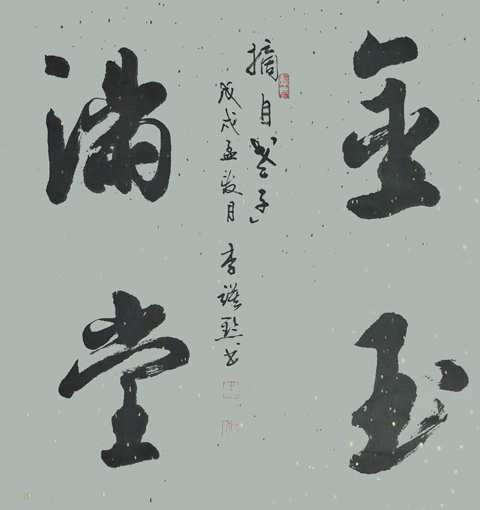 金玉
滿堂
摘自《老子》
戊戌孟夏月 李
书